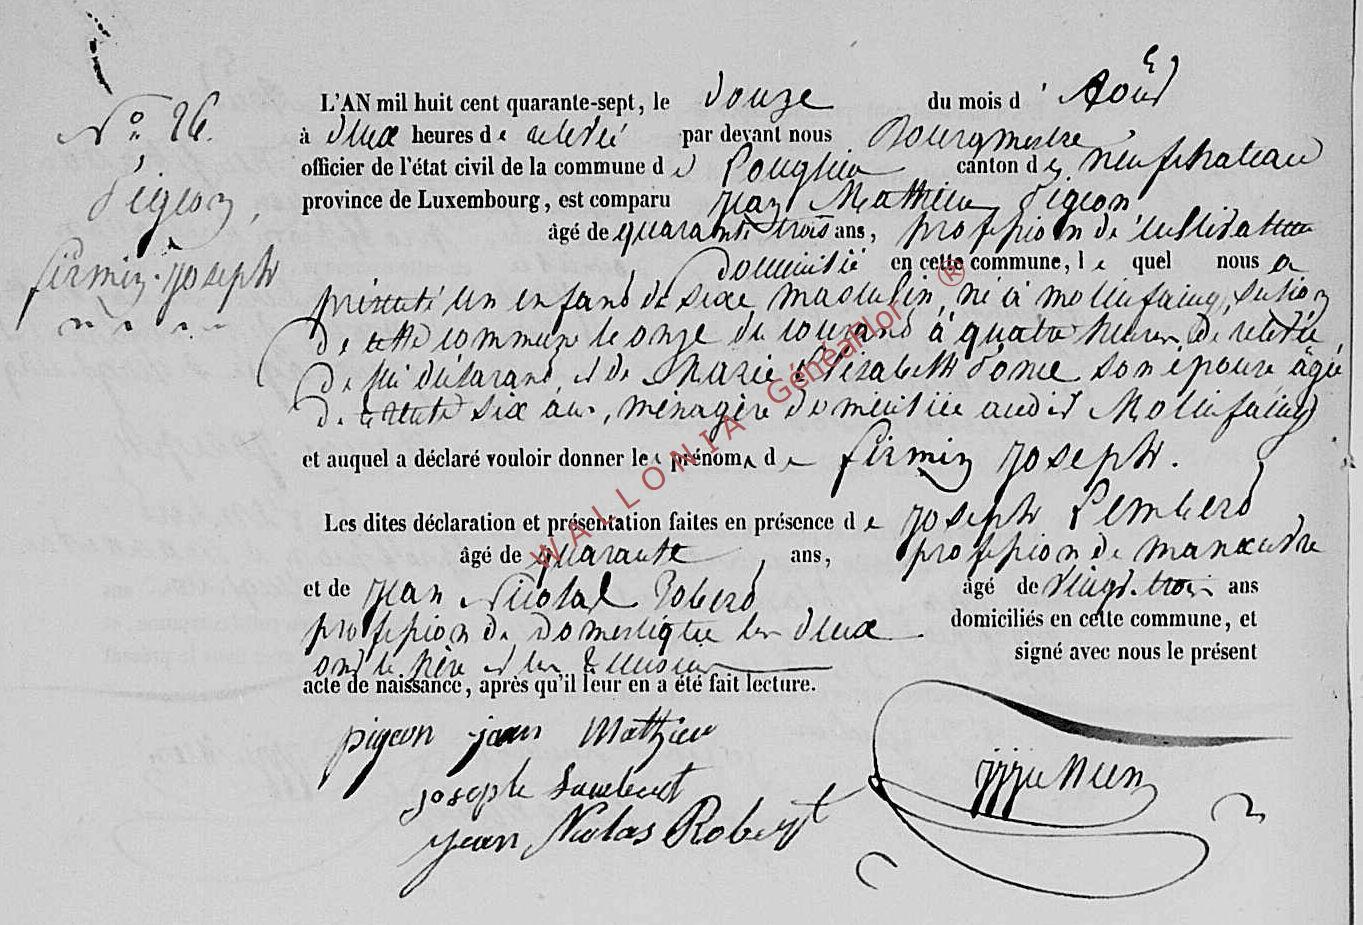 N° 26.
Pigeon,
firmin Joseph
L'AN mil huit cent quarante-sept, le douze du mois d' Août
à deux heures de relevée par devant nous Bourgmestre
officier de l'état civil de la commune de canton de neufchateau
province de Luxembourg, est comparu Jean Mathieu Pigeon
âgé de quarante trois ans, profession de cultivateur
domicilié en cette commune, le quel nous a
présenté un enfant de sexe masculin, né à molinfaing, section
de cette commune le onze du courant à quatre heures de relevée,
de lui déclarant, et de Marie Elisabeth son épouse âgée
de trente six ans, ménagère domiciliée audit Molinfaing
et auquel a déclaré vouloir donner les prénoms de firmin Joseph.
Les dites déclaration et présentation faites en présence de Joseph Lambert
âgé de quarante ans, profession de manœuvre
et de Jean Nicolas Robert âgé de vingt-trois ans
profession de domestique les deux domiciliés en cette commune, et
ont le père et les témoins signé avec nous le présent
acte de naissance, après qu'il leur en a été fait lecture.
pigeon jean Mathieu
joseph Lambert
jean Nicolas Robert
WALLONIA Généanlor ®